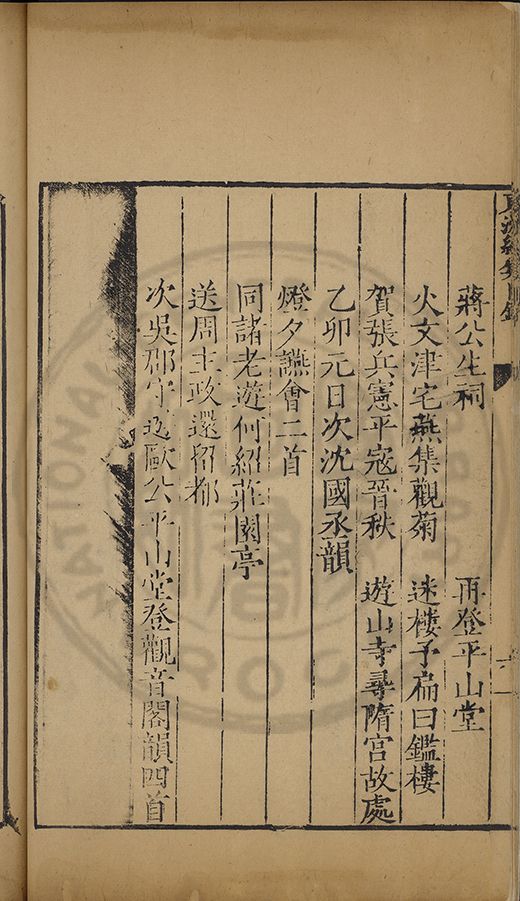 蔣公生祠　再登平山堂
火文津宅燕集觀菊　迷樓予扁曰鑑樓
賀張兵憲平寇晉秩　遊山寺尋隋宮故處
乙卯元日次沈國丞韻
燈夕讌會二首
同諸老遊何紹莊園亭
送周主政還留都
次吳郡守遊歐公平山堂登觀音閣韻四首